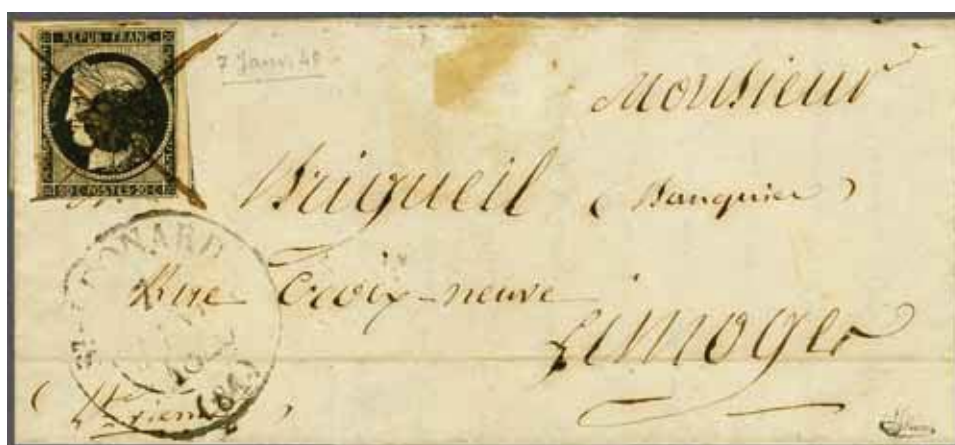 REPUB. FRANC.
20 C. POSTES 20 C.
7 Janv. 49
Monsieur
Brigueil (Banquier)
Rue Croix-neuve
Limoges
ST LEONARD
(84)